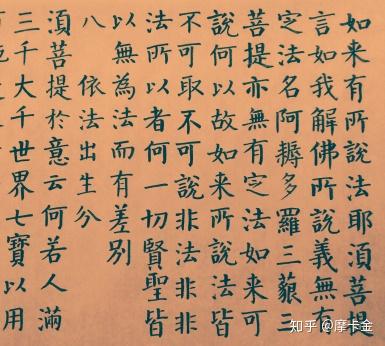 如来有所說法耶須菩提
言如我解佛所說義無有
定法名阿耨多羅三藐三
菩提亦無有定法如来可
說何以故如来所說法皆
不可取不可說非法非非
法所以者何一切賢聖皆
以無為法而有差別
八 依法出生分
須菩提於意云何若人滿
三千大千世界七寶以用
知乎 @摩卡金